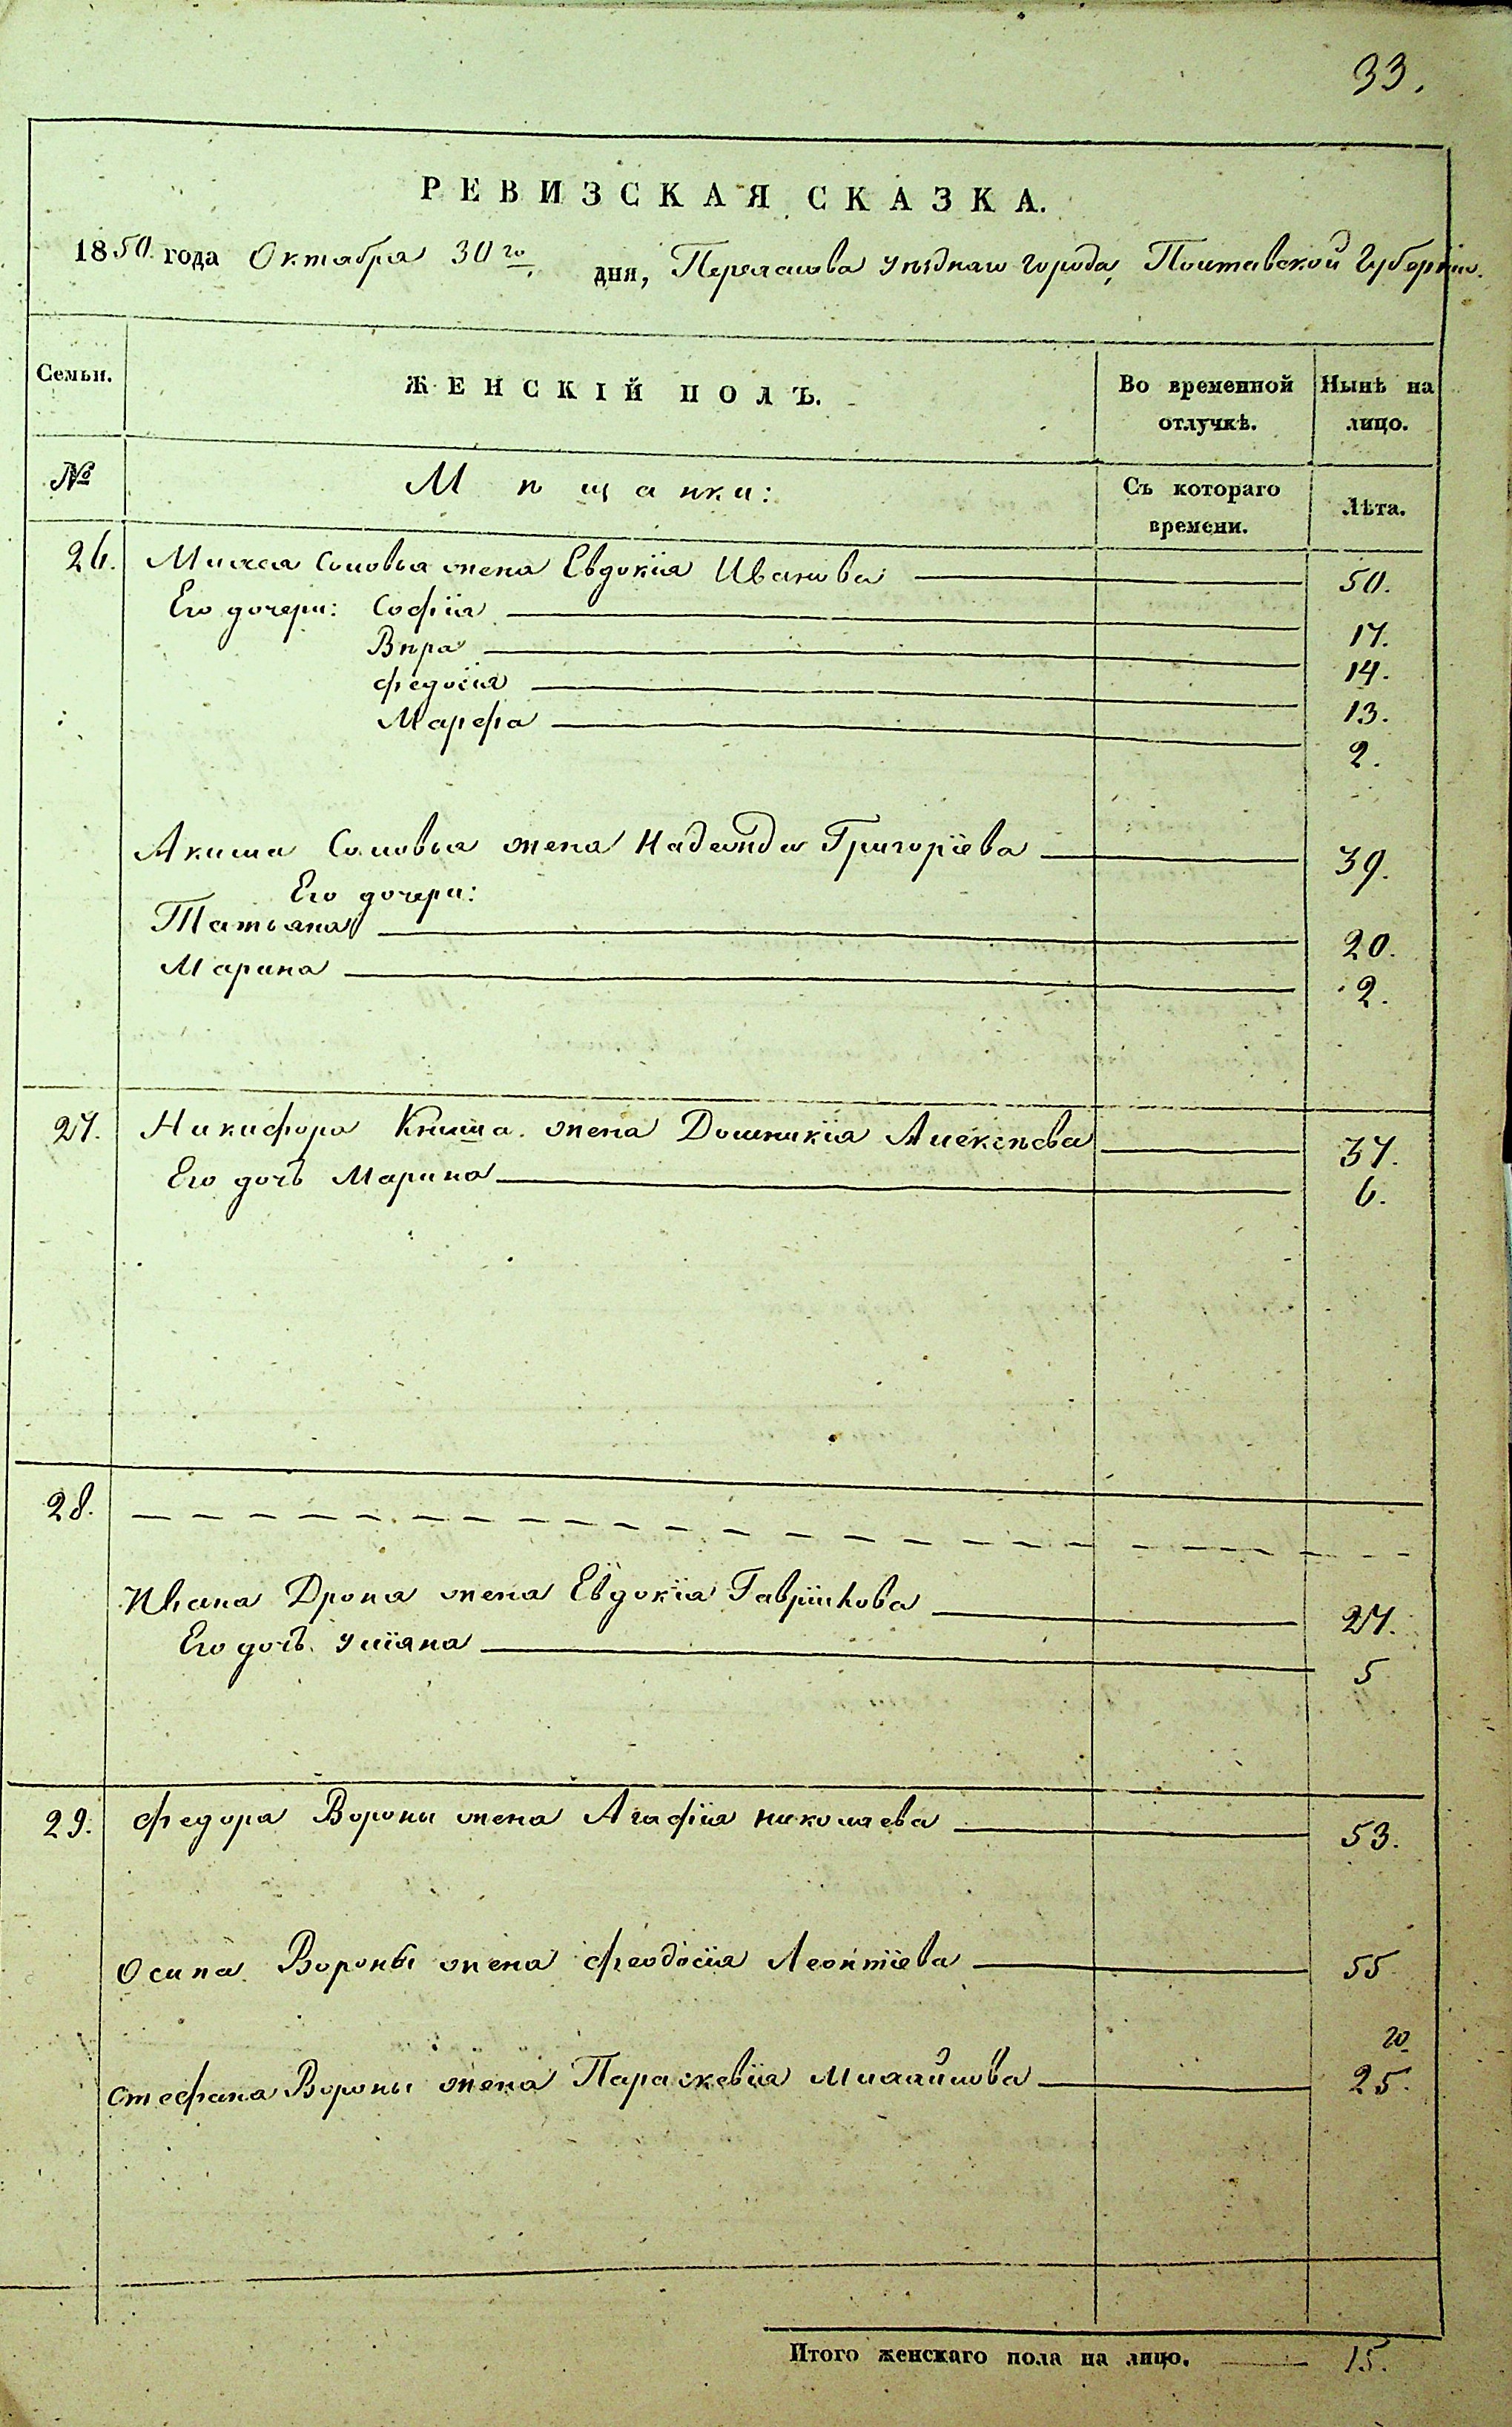 33.
РЕВИЗСКАЯ СКАЗКА.
1850 года Октября 30го дня, Переяслова уѣзднаго города, Полтавской Губерніи.
Семьи.
ЖЕНСКІЙ ПОЛЪ.
Во временной отлучкѣ.
Нынѣ на лицо.
№
Мѣщанки:
Съ котораго времени.
Лѣта.
26. Соловья жена Евдокія Иванова 50.
Его дочери: Софія 17.
Вѣра 14.
Федосія 13.
Марфа 2.
Акима Соловья жена Надежда Григоріева 39.
Его дочери:
Татьяна 20.
Марина 2.
27. Никифора Книша жена Домникія Алексѣева 37.
Его дочь Марина 6.
28.
Ивана Дрона жена Евдокія Гавріилова 27.
Его дочь Уліяна 5
29. Федора Вороны жена Агафія Николаева 53.
Осипа Вороны жена Феодосія Леонтіева 55
Стефана Вороны жена Параскевія Михайлова 25.
Итого женскаго пола на лицо. 15.